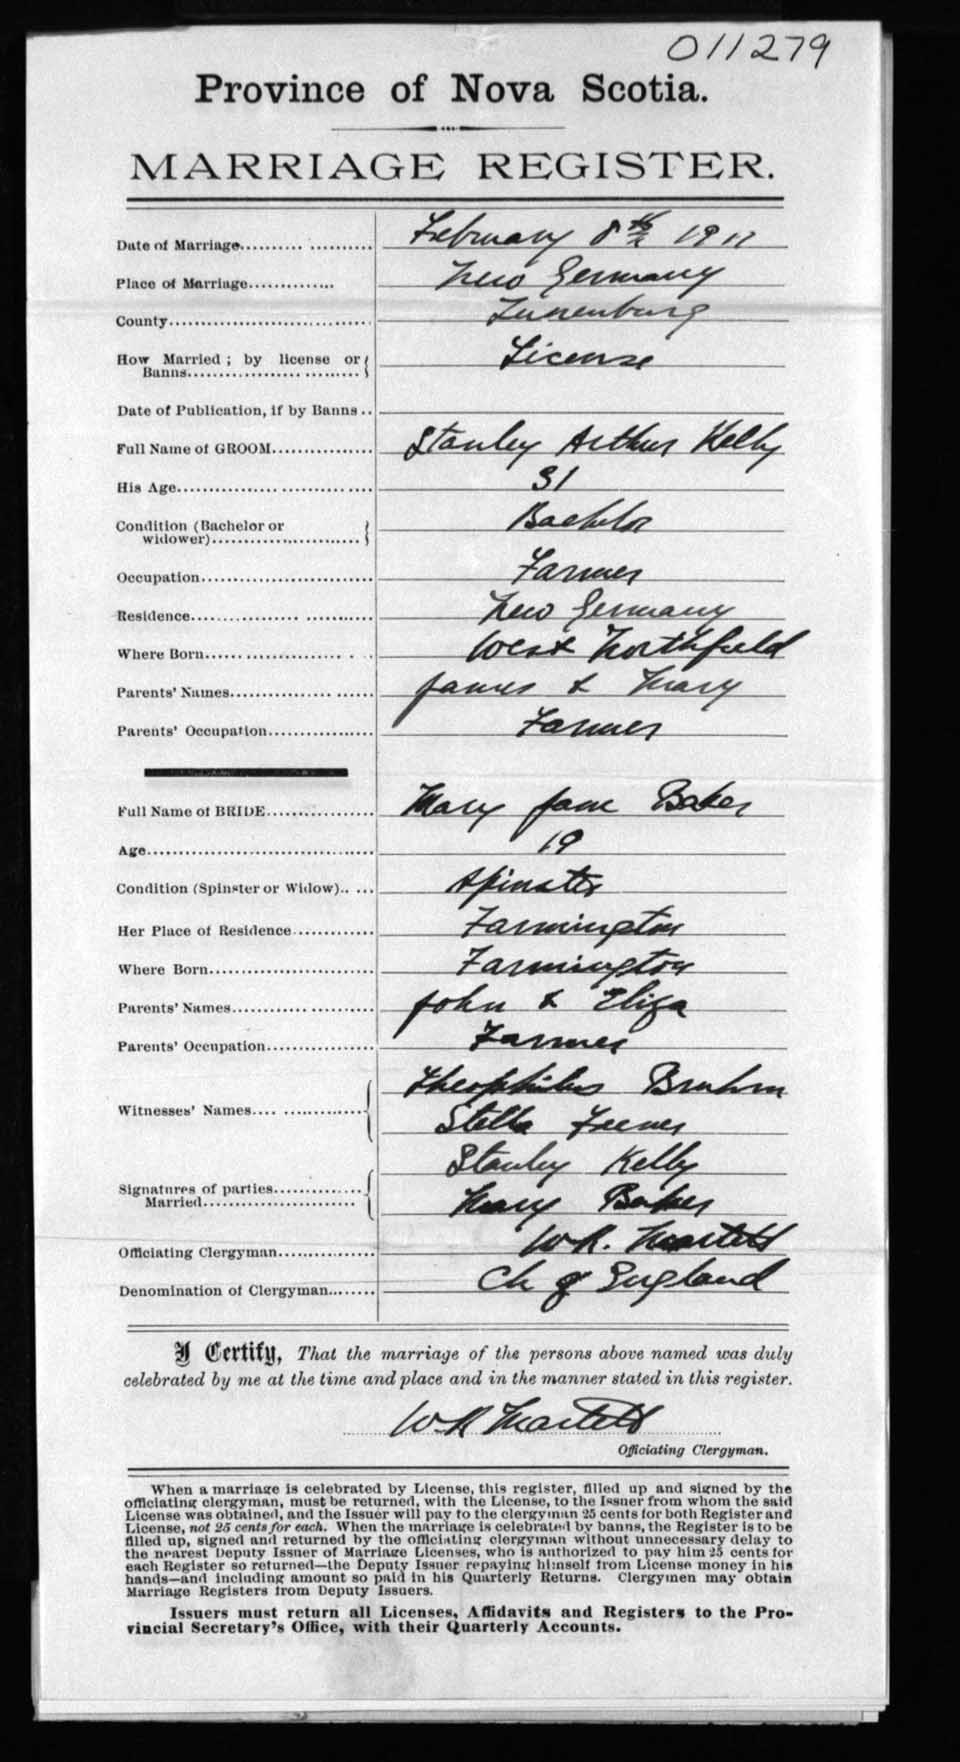 011279
Province of Nova Scotia.
MARRIAGE REGISTER.
Date of Marriage February 8th 1911
Place of Marriage New Germany
County Lunenburg
How Married ; by license or License
Banns
Date of Publication, if by Banns
Full Name of GROOM Stanley Arthur Kelly
His Age 31
Condition (Bachelor or Bachelor
widower)
Occupation Farmer
Residence New Germany
Where Born West Northfield
Parents' Names James & Mary
Parents' Occupation Farmer
Full Name of BRIDE Mary Jane Baker
Age 19
Condition (Spinster or Widow) Spinster
Her Place of Residence Farmington
Where Born Farmington
Parents' Names John & Eliza
Parents' Occupation Farmer
Theophilus Bruhm
Witnesses' Names
Stella Feener
Stanley Kelly
Signatures of parties
Married Mary Baker
Officiating Clergyman W.R. Martell
Denomination of Clergyman Ch of England
I Certify, That the marriage of the persons above named was duly
celebrated by me at the time and place and in the manner stated in this register.
W R Martell
Officiating Clergyman.
When a marriage is celebrated by License, this register, filled up and signed by the
officiating clergyman, must be returned, with the License, to the Issuer from whom the said
License was obtained, and the Issuer will pay to the clergyman 25 cents for both Register and
License, not 25 cents for each. When the marriage is celebrated by banns, the Register is to be
filled up, signed and returned by the officiating clergyman without unnecessary delay to
the nearest Deputy Issuer of Marriage Licenses, who is authorized to pay him 25 cents for
each Register so returned—the Deputy Issuer repaying himself from License money in his
hands—and including amount so paid in his Quarterly Returns. Clergymen may obtain
Marriage Registers from Deputy Issuers.
Issuers must return all Licenses, Affidavits and Registers to the Pro-
vincial Secretary's Office, with their Quarterly Accounts.